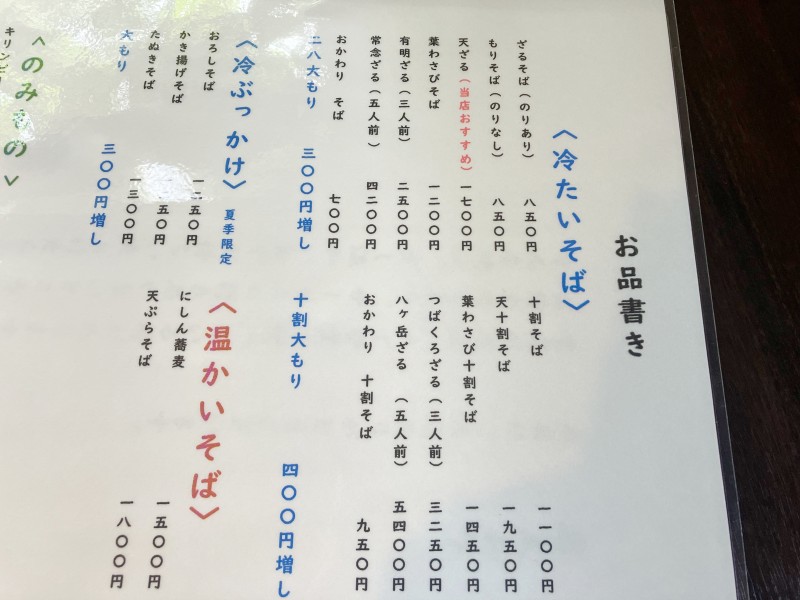 お品書き
〈冷たいそば〉
ざるそば(のりあり) 八五〇円
もりそば(のりなし) 八五〇円
天ざる(当店おすすめ) 一七〇〇円
葉わさびそば 一二〇〇円
有明ざる(三人前) 二五〇〇円
常念ざる(五人前) 四二〇〇円
おかわり そば 七〇〇円
二八大もり 三〇〇円増し
十割そば 一一〇〇円
天十割そば 一九五〇円
葉わさび十割そば 一四五〇円
つばくろざる(三人前) 三二五〇円
八ヶ岳ざる(五人前) 五四〇〇円
おかわり 十割そば 九五〇円
十割大もり 四〇〇円増し
〈冷ぶっかけ〉 夏季限定
おろしそば 一二五〇円
かき揚げそば 五〇円
たぬきそば 一三〇〇円
大もり 三〇〇円増し
〈温かいそば〉
にしん蕎麦 一五〇〇円
天ぷらそば 一八〇〇円
〈のみもの〉